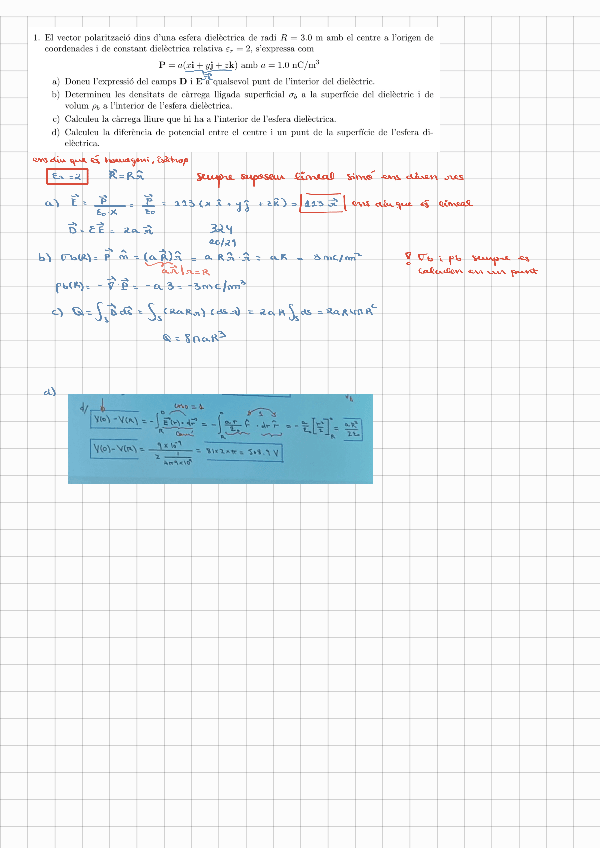 1. El vector polarització dins d'una esfera dielèctrica de radi R = 3.0 m amb el centre a l'origen de
coordenades i de constant dielèctrica relativa εr = 2, s'expressa com
P = a(xi + yj + zk) amb a = 1.0 nC/m³
a) Doneu l'expressió del camps D i E a qualsevol punt de l'interior del dielèctric.
b) Determineu les densitats de càrrega lligada superficial σb a la superfície del dielèctric i de
volum ρb a l'interior de l'esfera dielèctrica.
c) Calculeu la càrrega lliure que hi ha a l'interior de l'esfera dielèctrica.
d) Calculeu la diferència de potencial entre el centre i un punt de la superfície de l'esfera di-
elèctrica.
ens diu que és homogeni, isòtrop
εr = 2 R⃗ = Rr̂ sempre suposem lineal sinó ens diuen res
a) E⃗ = P⃗/(ε0·χ) = P⃗/ε0 = 113 (x î + y ĵ + z k̂) = 113 r⃗ ens diu que és lineal
D⃗ = εE⃗ = 2a r⃗
b) σb(R) = P⃗ n̂ = (a R⃗) r̂ = a R r̂·r̂ = aR = 3nC/m² ! σb i ρb sempre es
ar⃗|r=R calculen en un punt
ρb(R) = -∇⃗·P⃗ = -a3 = -3nC/m³
c) Q = ∫s D⃗ ds⃗ = ∫s (2aRr̂)(ds r̂) = 2aR ∫s ds = 2aR4πR²
Q = 8πaR³
d)
d) cos0 = 1
V(0) - V(R) = -∫ E⃗(r)·dr⃗ = -∫ ar/ε0 r̂ · dr r̂ = -a/ε0 [r²/2] = aR²/2ε0
V(0) - V(R) = 9×10⁻⁹ / 2 1/(4π9×10⁹) = 81×2×π = 508.9 V